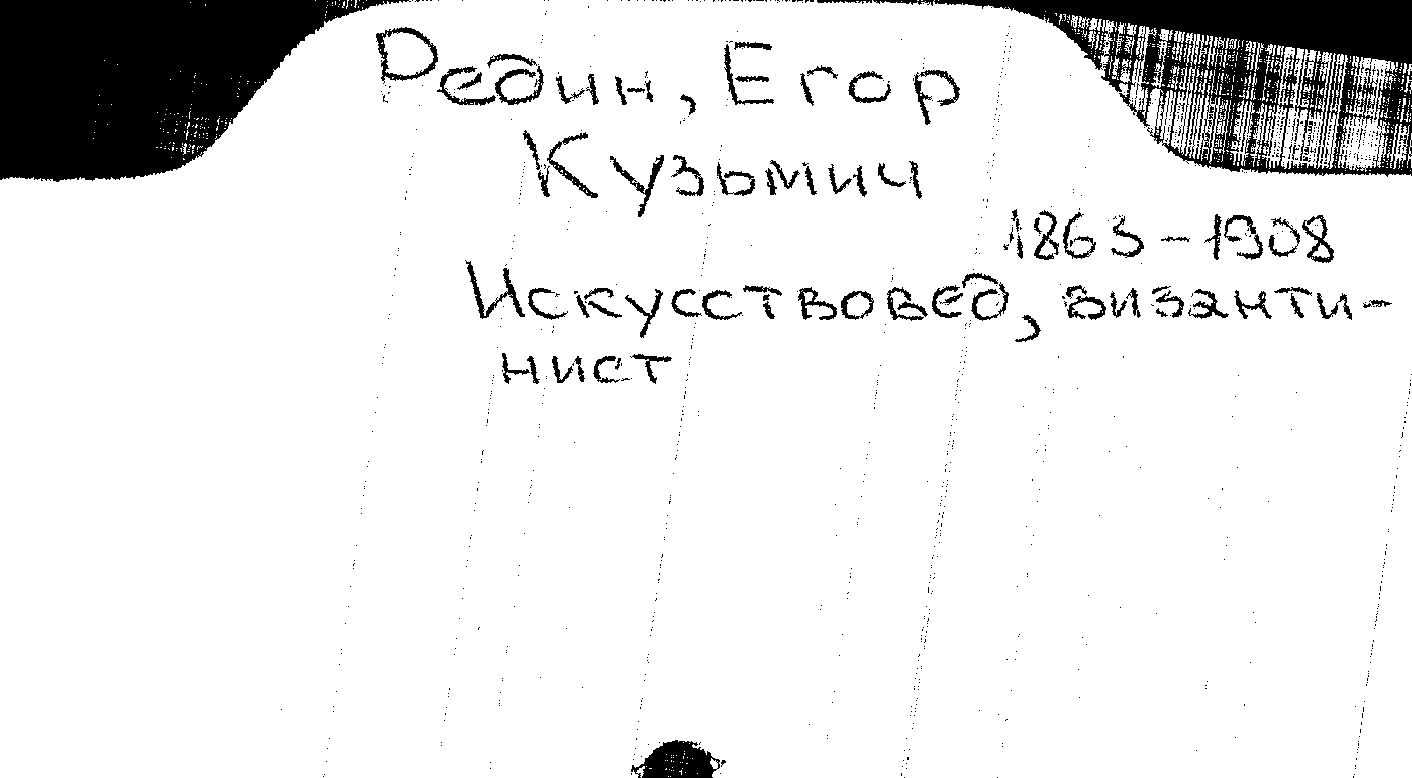 Редин, Егор
Кузьмич
1863-1908
Искусствовед, византи-
нист